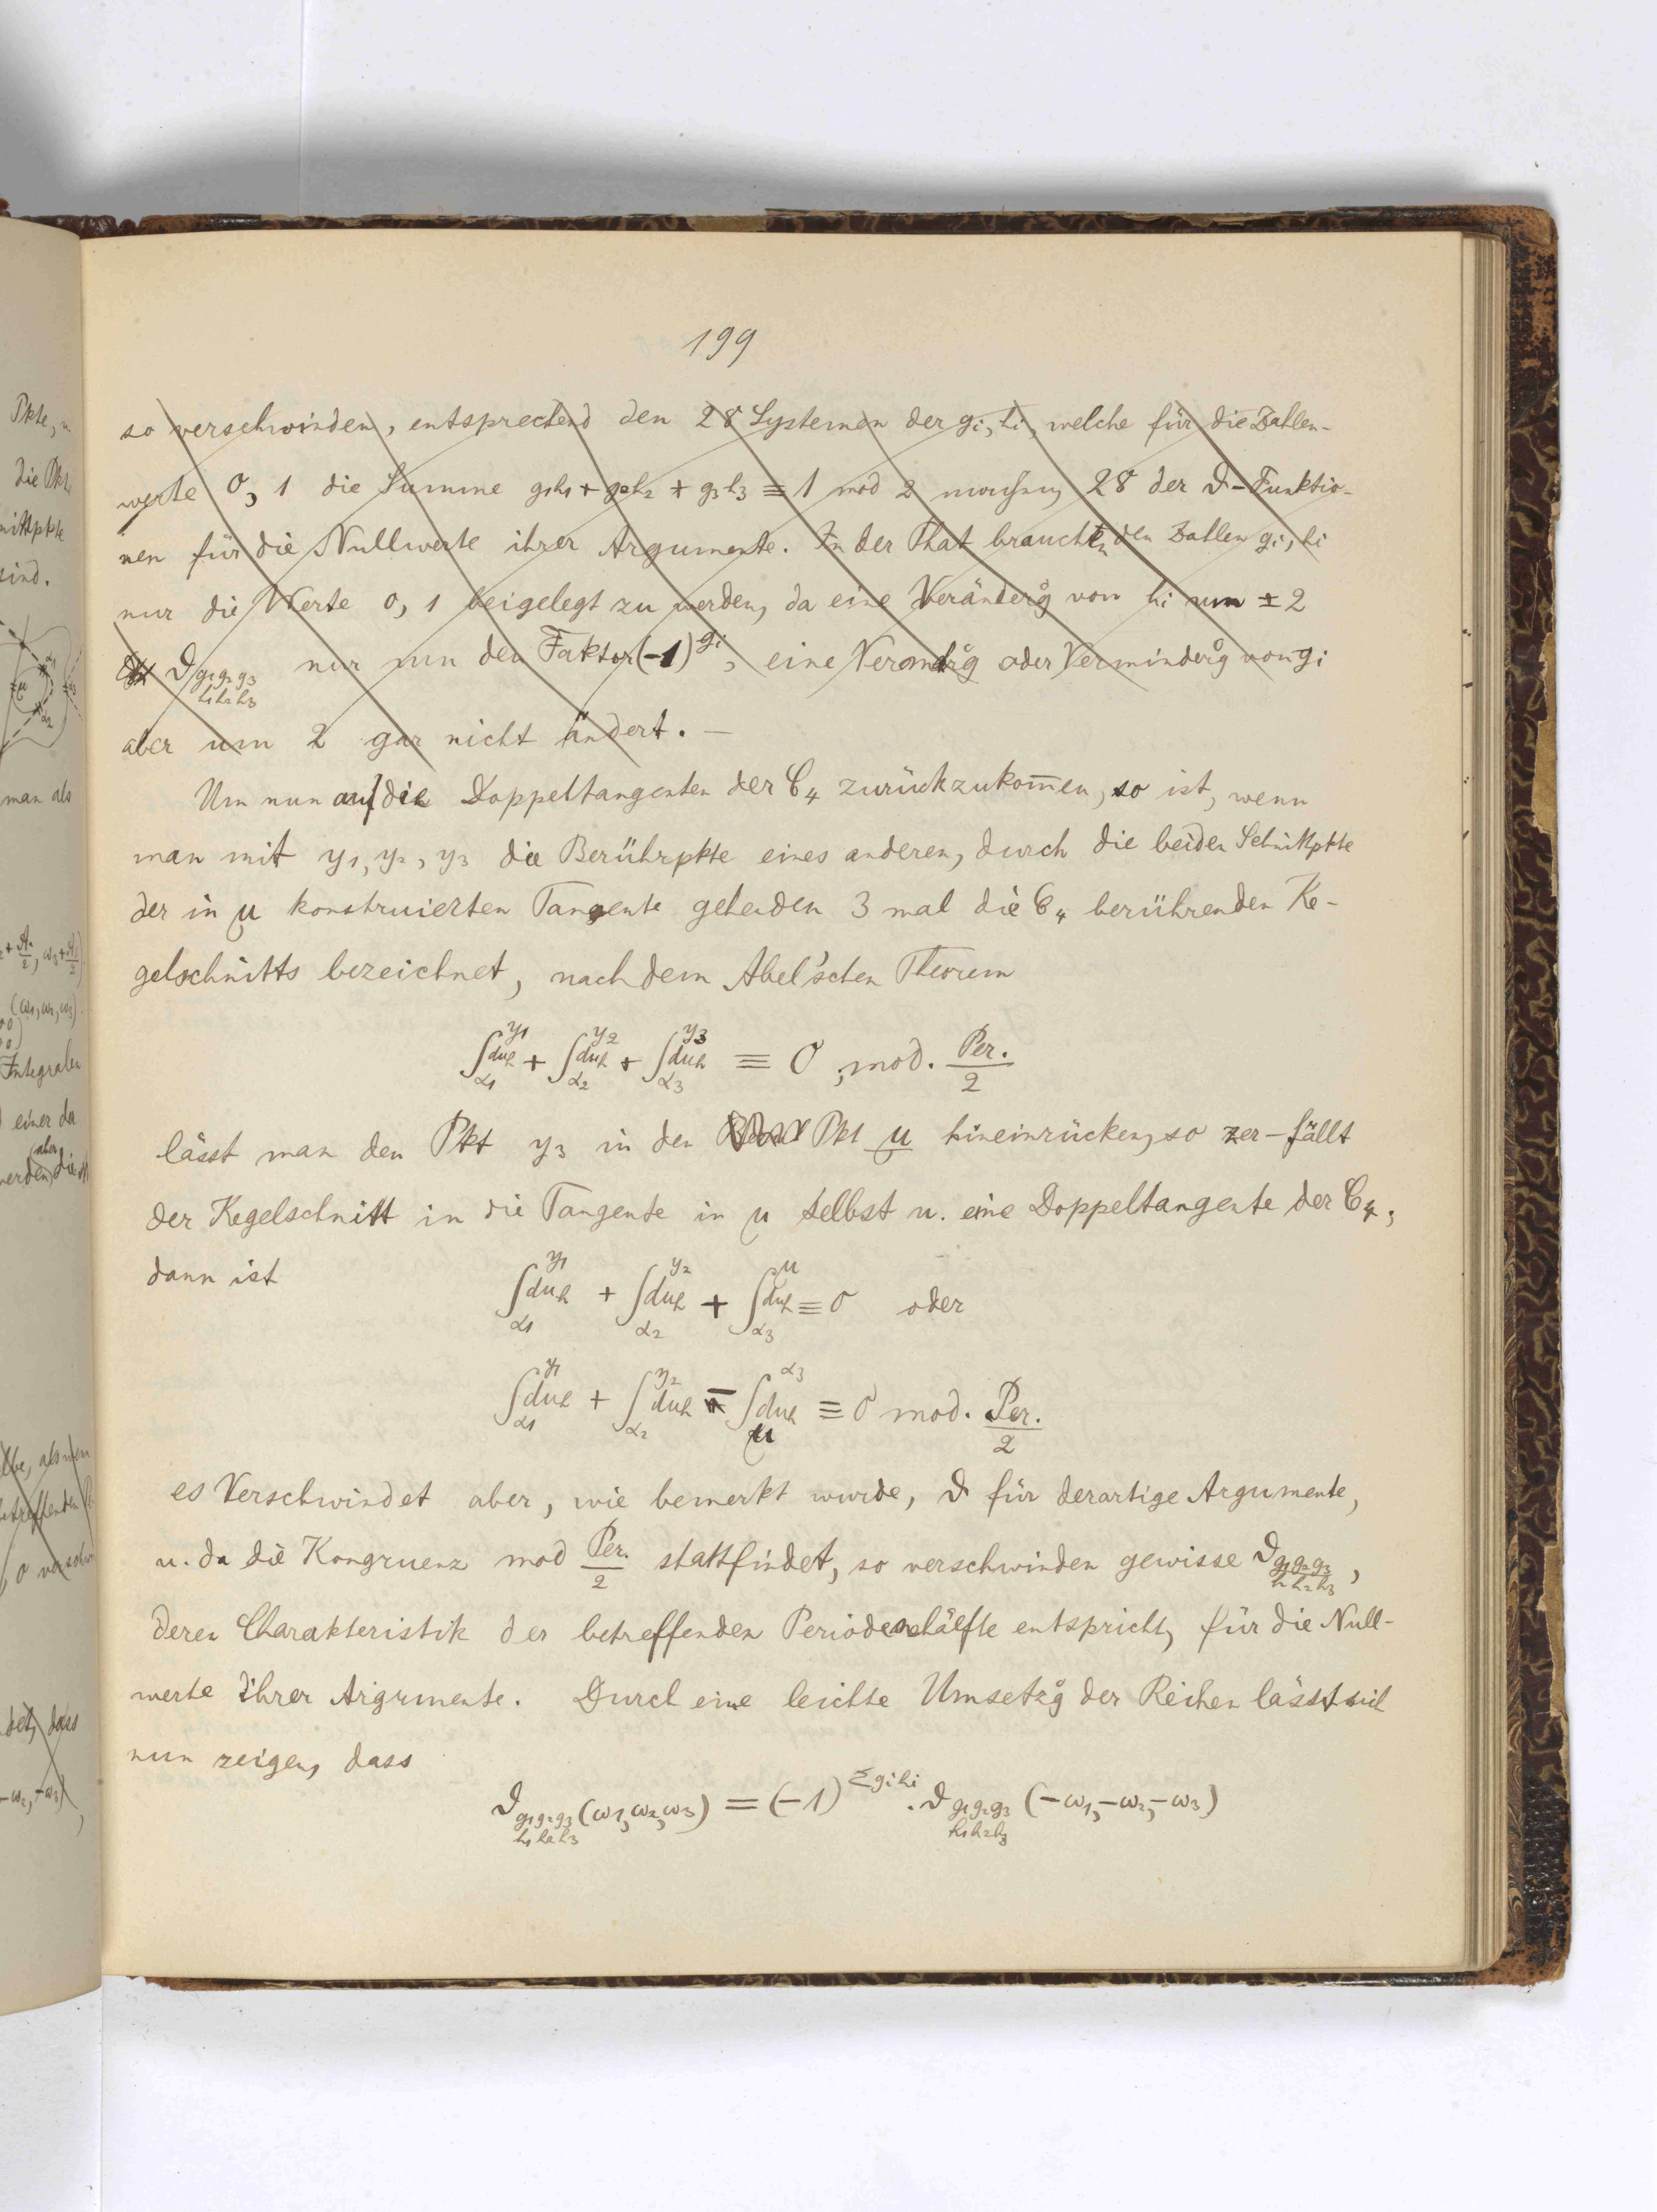 199
so verschwinden, entsprechend den 28 Systemen der gi, hi, welche für die Zahlen-
werte 0, 1 die Summe g1h1 + g2h2 + g3h3 ≡ 1 mod 2 machen, 28 der ϑ-Funktio-
nen für die Nullwerte ihrer Argumente. In der That brauchen den Zahlen gi, hi
nur die Werte 0, 1 beigelegt zu werden, da eine Veränderg von hi um ± 2
ϑ g1g2g3 h1h2h3 nur um den Faktor (-1)^gi, eine Vermehrg oder Verminderg von gi
aber um 2 gar nicht ändert. —
Um nun auf die Doppeltangenten der C4 zurückzukom̅en, so ist, wenn
man mit y1, y2, y3 die Berührpkte eines anderen, durch die beiden Schnittpkte
der in μ konstruierten Tangente gehenden 3 mal die C4 berührenden Ke-
gelschnitts bezeichnet, nach dem Abel'schen Theorem
∫_α1^y1 duh + ∫_α2^y2 duh + ∫_α3^y3 duh ≡ 0, mod. Per./2
lässt man den Pkt y3 in den Pkt μ hineinrücken, so zer-fällt
der Kegelschnitt in die Tangente in μ selbst u. eine Doppeltangente der C4,
dann ist
∫_α1^y1 duh + ∫_α2^y2 duh + ∫_α3^μ duh ≡ 0 oder
∫_α1^y1 duh + ∫_α2^y2 duh - ∫_μ^α3 duh ≡ 0 mod. Per./2
es Verschwindet aber, wie bemerkt wurde, ϑ für derartige Argumente,
u. da die Kongruenz mod Per./2 stattfindet, so verschwinden gewisse ϑ g1g2g3 h1h2h3,
deren Charakteristik der betreffenden Periodenhälfte entspricht, für die Null-
werte ihrer Argumente. Durch eine leichte Umsetzg der Reihen lässt sich
nun zeigen, dass
ϑ g1g2g3 h1h2h3 (ω1, ω2, ω3) = (-1)^Σgihi . ϑ g1g2g3 h1h2h3 (-ω1, -ω2, -ω3)